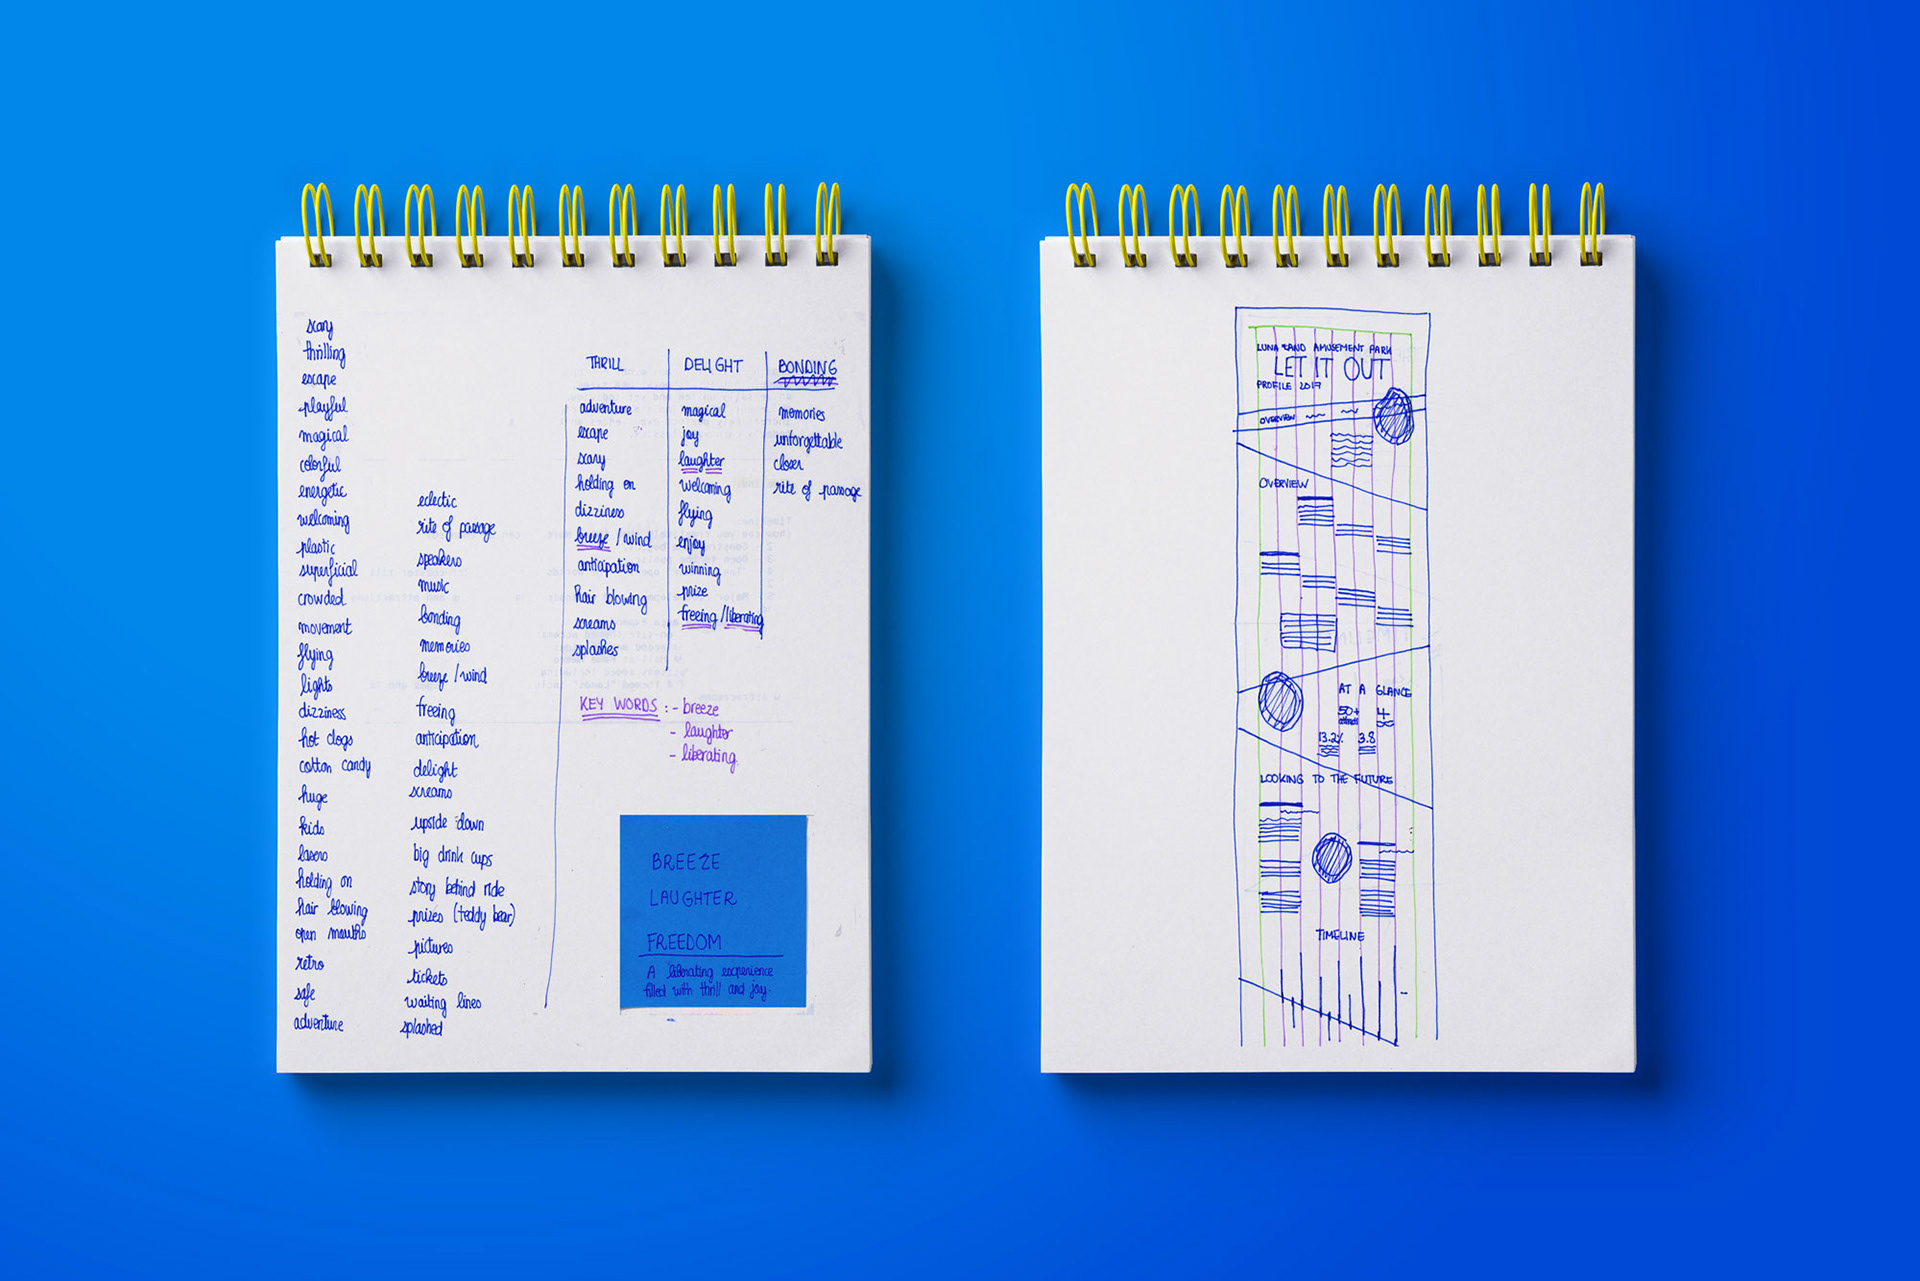 scary
thrilling
escape
playful
magical
colorful
energetic
welcoming
plastic
superficial
crowded
movement
flying
lights
dizziness
hot dogs
cotton candy
huge
kids
lasers
holding on
hair blowing
open mouths
retro
safe
adventure
eclectic
rite of passage
speakers
music
bonding
memories
breeze / wind
freeing
anticipation
delight
screams
upside down
big drink cups
story behind ride
prizes (teddy bear)
pictures
tickets
waiting lines
splashed
THRILL
adventure
escape
scary
holding on
dizziness
breeze / wind
anticipation
hair blowing
screams
splashes
DELIGHT
magical
joy
laughter
welcoming
flying
enjoy
winning
prize
freeing / liberating
BONDING
memories
unforgettable
closer
rite of passage
KEY WORDS : - breeze
- laughter
- liberating
BREEZE
LAUGHTER
FREEDOM
A liberating experience
filled with thrill and joy.
LUNA LAND AMUSEMENT PARK
LET IT OUT
PROFILE 2017
OVERVIEW
OVERVIEW
AT A GLANCE
50+ 4
13.2% 3.8
LOOKING TO THE FUTURE
TIMELINE